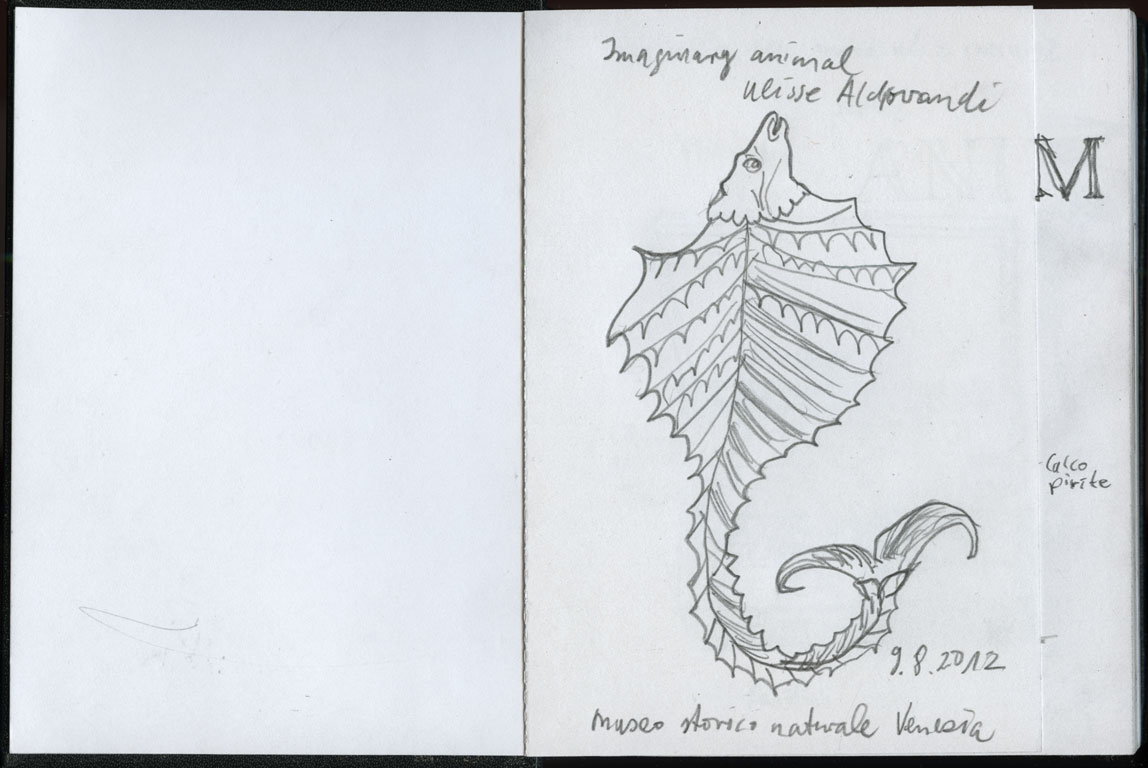 Imaginary animal
Ulisse Aldrovandi
M
Calco
pirite
9.8.2012
Museo storico naturale Venezia